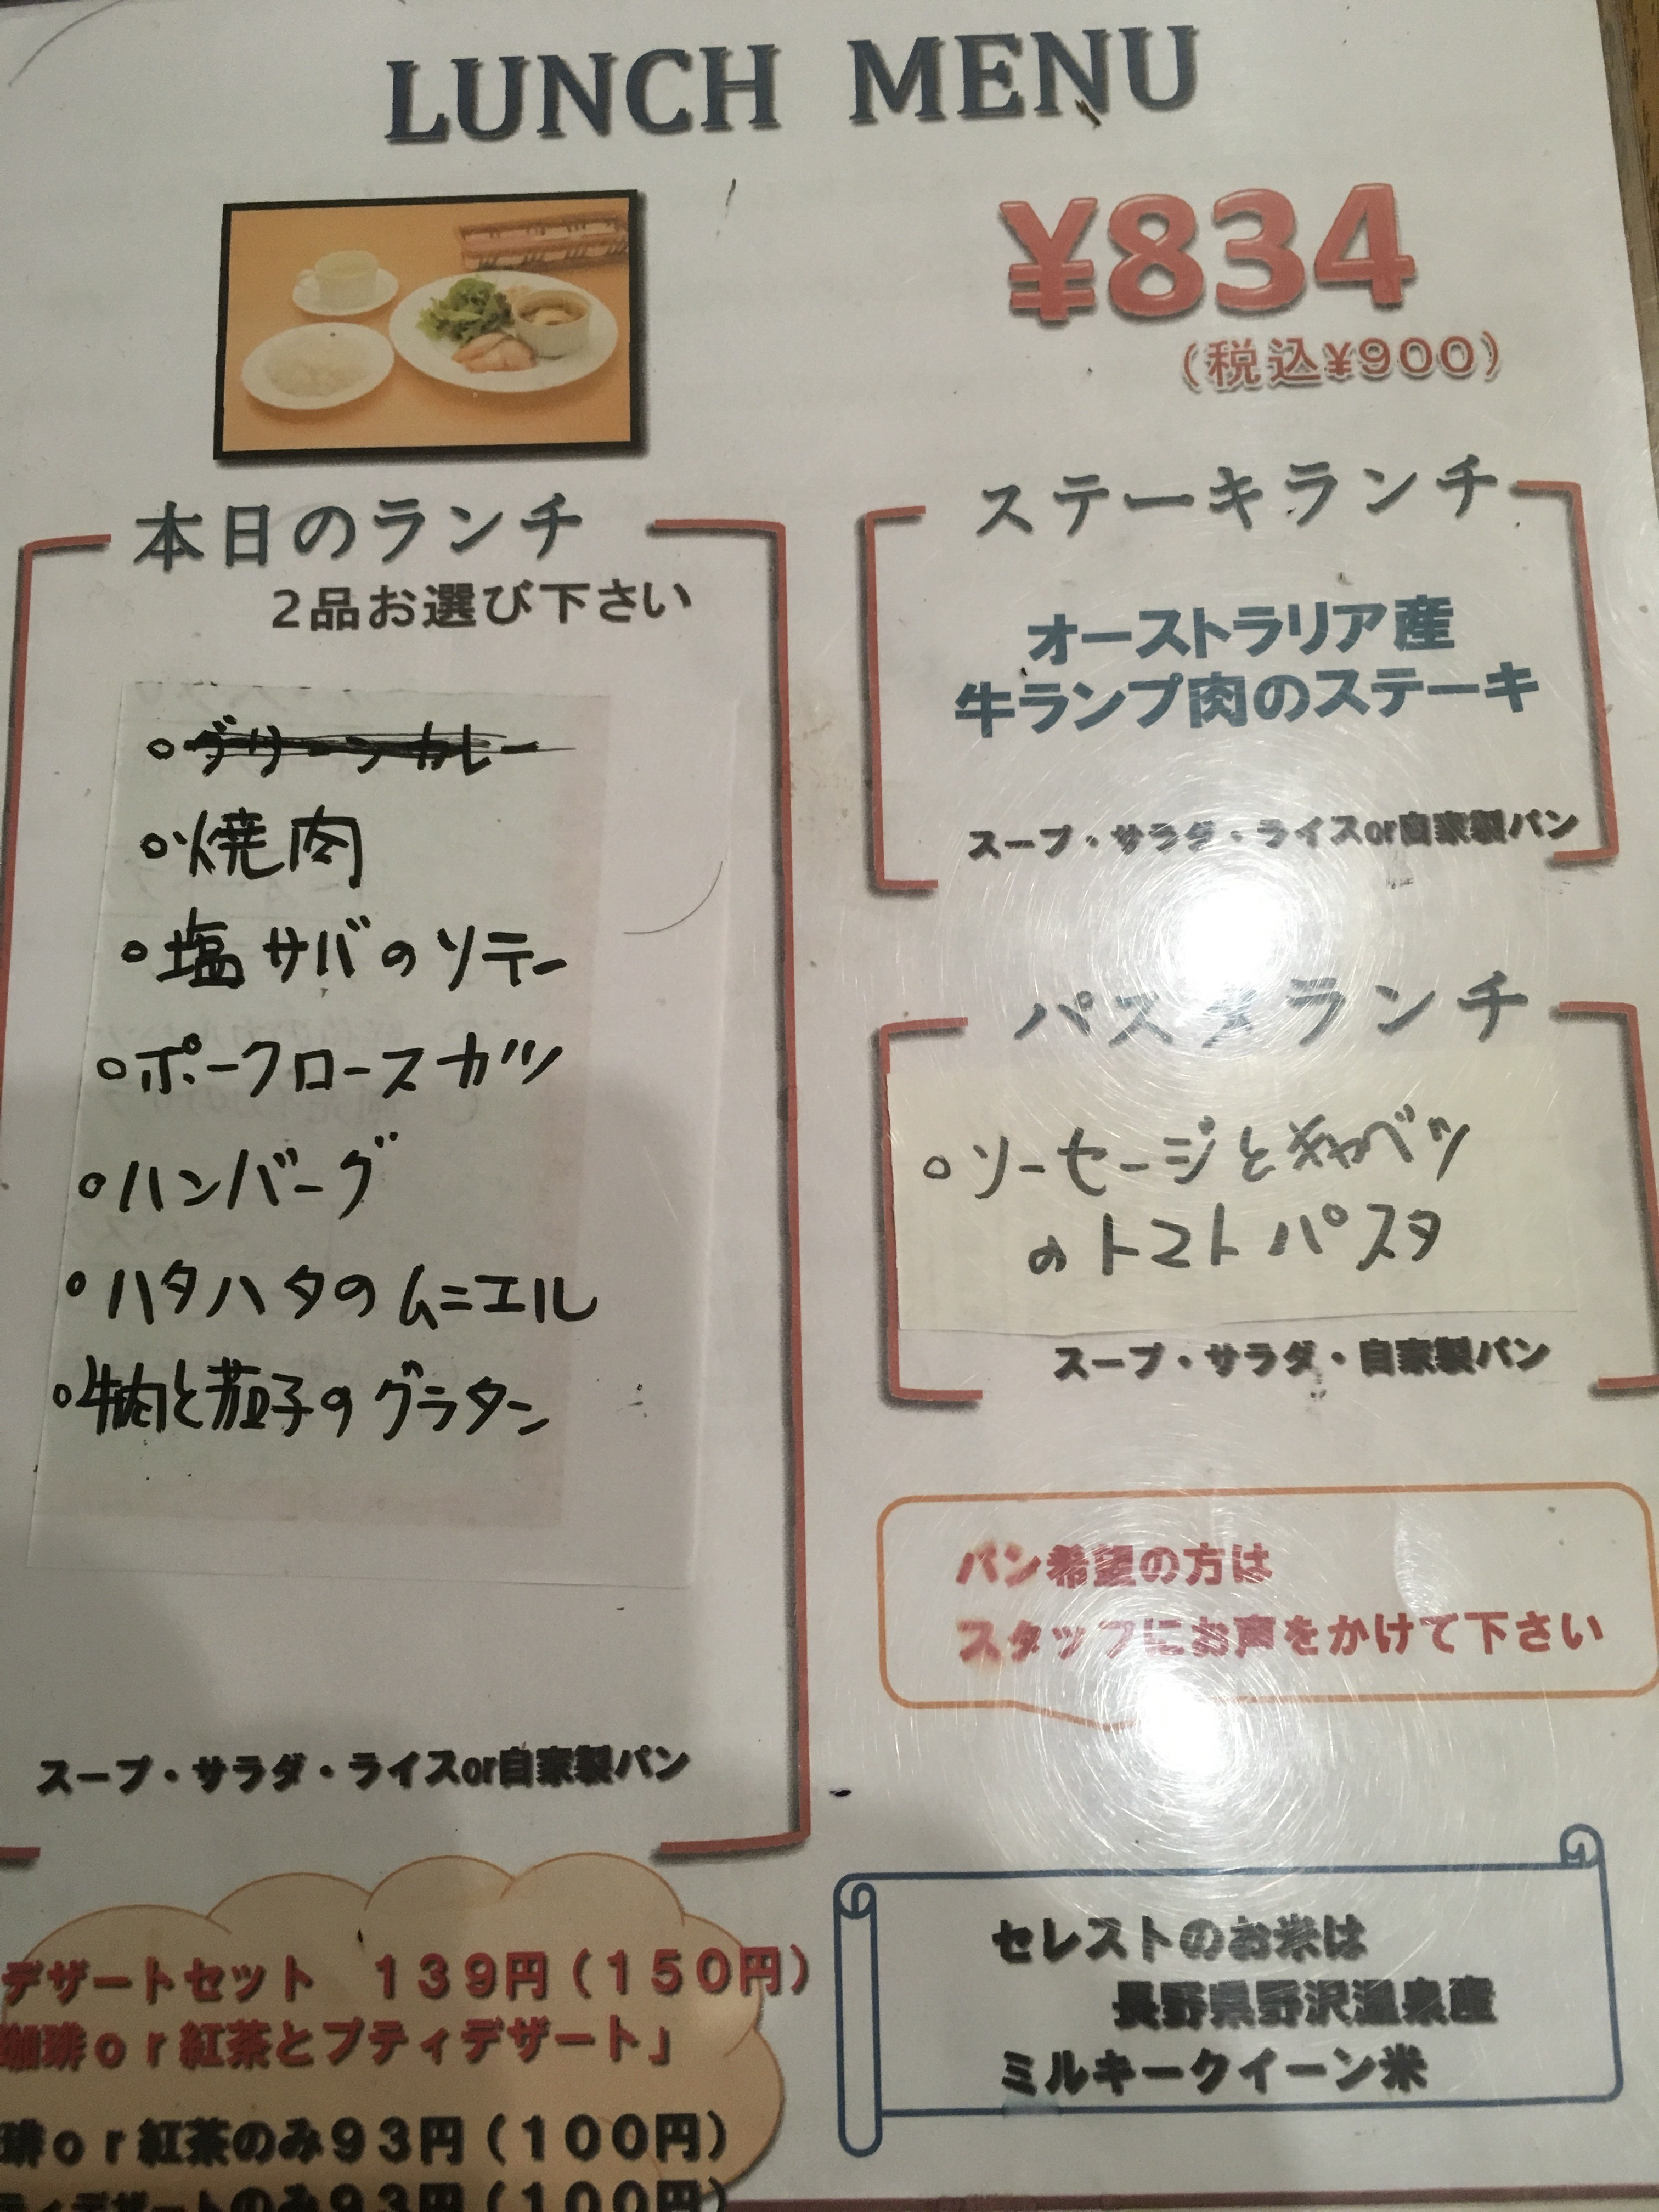 LUNCH MENU
¥834
(税込¥900)
本日のランチ
2品お選び下さい
グリーンカレー
焼肉
塩サバのソテー
ポークロースカツ
ハンバーグ
ハタハタのムニエル
牛肉と茄子のグラタン
スープ・サラダ・ライスor自家製パン
ステーキランチ
オーストラリア産
牛ランプ肉のステーキ
スープ・サラダ・ライスor自家製パン
パスタランチ
ソーセージとキャベツ
のトマトパスタ
スープ・サラダ・自家製パン
パン希望の方は
スタッフにお声をかけて下さい
デザートセット 139円(150円)
珈琲or紅茶とプティデザート」
琲or紅茶のみ93円(100円)
ティデザートのみ93円(100円)
セレストのお米は
長野県野沢温泉産
ミルキークイーン米